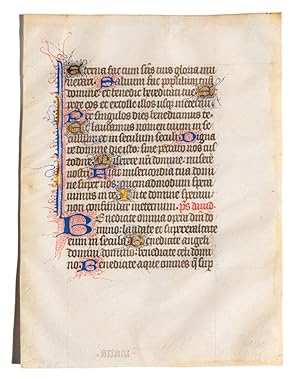 Eterna fac cum scīs tuis gloria mu
nerari. Saluum fac populum tuū
domine: et benedic hereditati tue
rege eos et extolle illos usqȝ in eternū
Per singulos dies benedicimus te
Et laudamus nomen tuum in se
culum: et in seculum seculi. Digna
re domine die isto: sine peccato nos cus
todire. Miserere nr̄i domine: miserē
nostri. Fiat misericordia tua domi
ne super nos: quemadmodum spera
uimus in te. In te domine speraui
non confundar in eternum. Ps dauid.
Benedicite omnia opera dn̄i do
mino: laudate et superexaltate
eum in secula. Benedicite angeli
domini domino: benedicite celi domi
no. Benedicite aque omnes q̄ sup